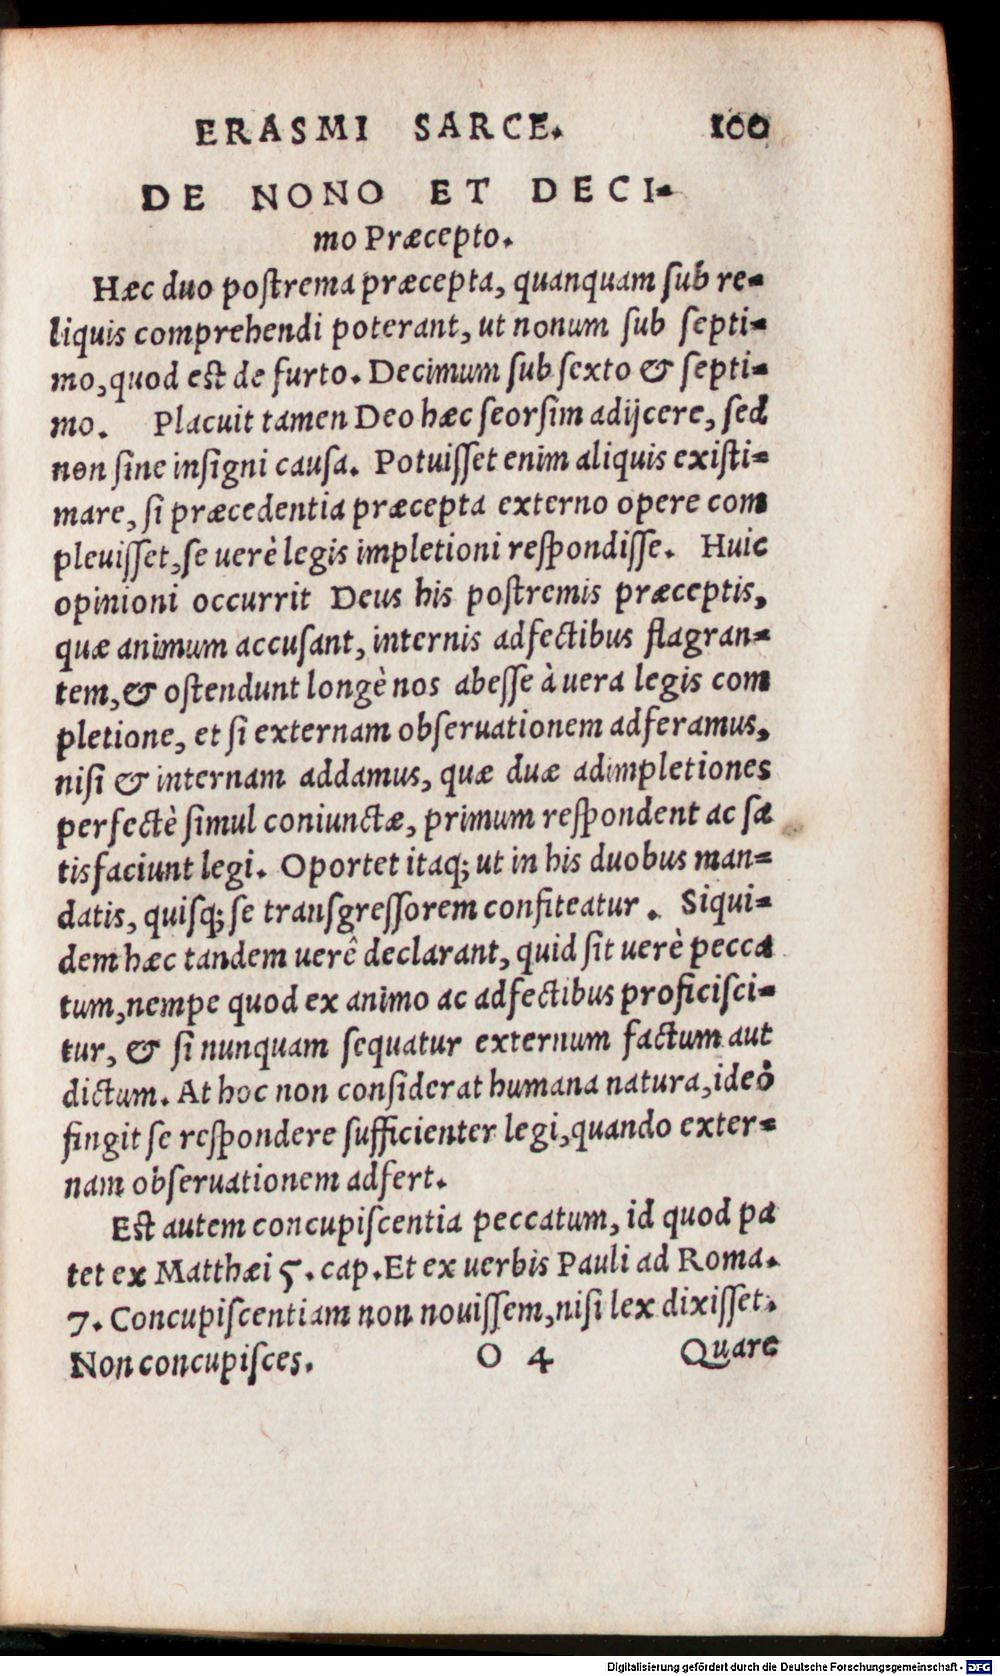 ERASMI SARCE. 100
DE NONO ET DECI-
mo Præcepto.
Hæc duo poſtrema præcepta, quanquam ſub re-
liquis comprehendi poterant, ut nonum ſub ſepti-
mo, quod eſt de furto. Decimum ſub ſexto & ſepti-
mo. Placuit tamen Deo hæc ſeorſim adijcere, ſed
non ſine inſigni cauſa. Potuiſſet enim aliquis exiſti-
mare, ſi præcedentia præcepta externo opere com
pleuiſſet, ſe uerè legis impletioni reſpondiſſe. Huic
opinioni occurrit Deus his poſtremis præceptis,
quæ animum accuſant, internis adfectibus flagran-
tem, & oſtendunt longè nos abeſſe à uera legis com
pletione, et ſi externam obſeruationem adferamus,
niſi & internam addamus, quæ duæ adimpletiones
perfectè ſimul coniunctæ, primum reſpondent ac ſa
tisfaciunt legi. Oportet itaq; ut in his duobus man-
datis, quiſq; ſe tranſgreſſorem confiteatur. Siqui-
dem hæc tandem uerê declarant, quid ſit uerè pecca
tum, nempe quod ex animo ac adfectibus proficiſci-
tur, & ſi nunquam ſequatur externum factum aut
dictum. At hoc non conſiderat humana natura, ideò
fingit ſe reſpondere ſufficienter legi, quando exter-
nam obſeruationem adfert.
Eſt autem concupiſcentia peccatum, id quod pa
tet ex Matthæi 5. cap. Et ex uerbis Pauli ad Roma.
7. Concupiſcentiam non nouiſſem, niſi lex dixiſſet.
Non concupiſces. O 4 Quare
Digitalisierung gefördert durch die Deutsche Forschungsgemeinschaft - DFG